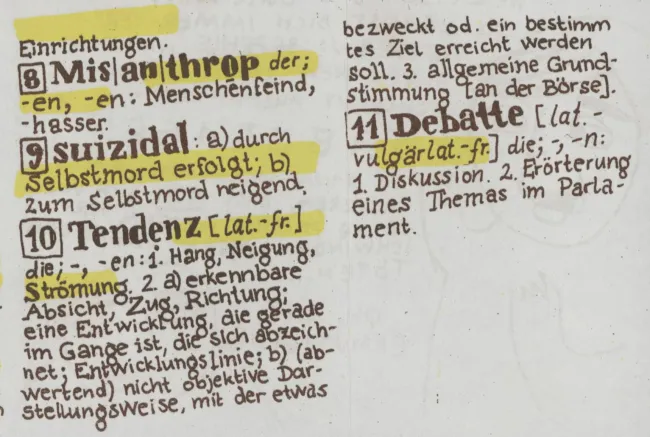 Einrichtungen.
8 Mis|an|throp der;
-en, -en: Menschenfeind,
-hasser.
9 suizidal: a) durch
Selbstmord erfolgt; b)
zum Selbstmord neigend.
10 Tendenz [lat.-fr.]
die; -, -en: 1. Hang, Neigung,
Strömung. 2. a) erkennbare
Absicht, Zug, Richtung;
eine Entwicklung, die gerade
im Gange ist, die sich abzeich-
net; Entwicklungslinie; b) (ab-
wertend) nicht objektive Dar-
stellungsweise, mit der etwas
bezweckt od. ein bestimm
tes Ziel erreicht werden
soll. 3. allgemeine Grund-
stimmung [an der Börse].
11 Debatte [lat.-
vulgärlat.-fr.] die; -, -n:
1. Diskussion. 2. Erörterung
eines Themas im Parla-
ment.